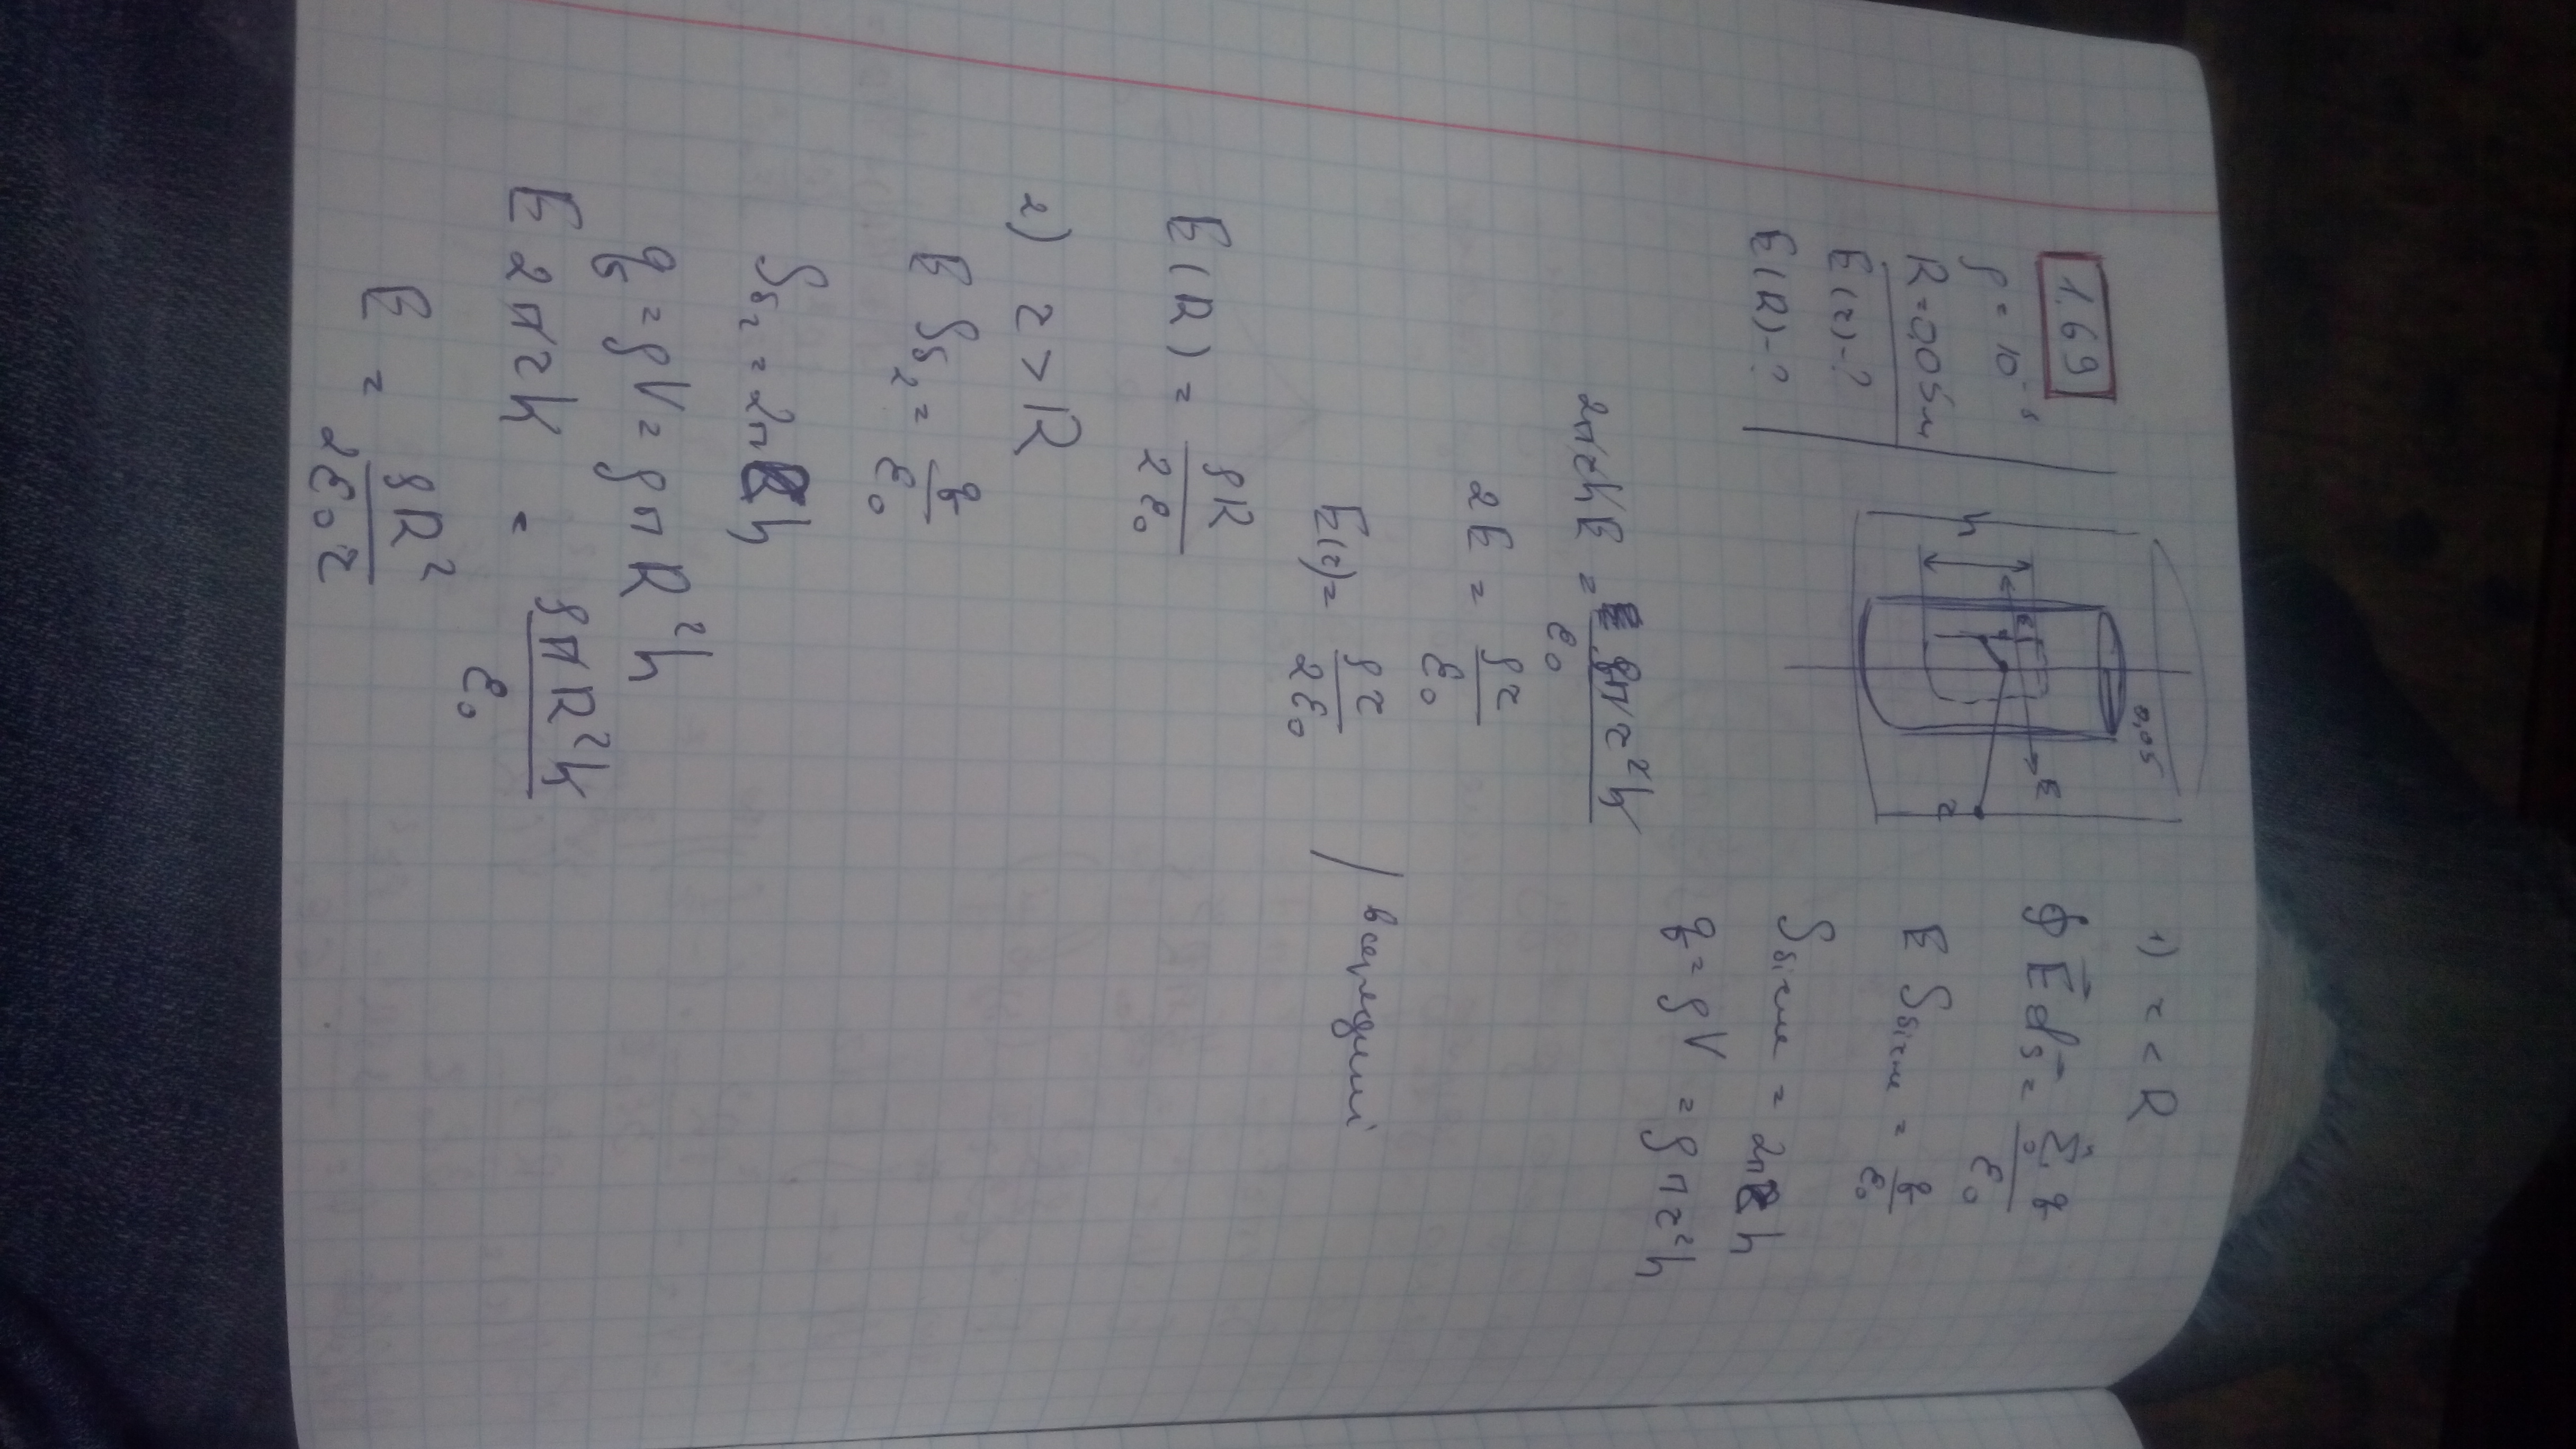 1.69
ρ = 10⁻⁸
R = 0,05 м
E(r) - ?
E(R) - ?
0,05
h
E
r
1) r < R
∮ E⃗ d s⃗ = Σ q / ε₀
E Sбічне = q / ε₀
Sбічне = 2πrh
q = ρV = ρπr²h
2πrhE = ρπr²h / ε₀
2E = ρr / ε₀
E(r) = ρr / 2ε₀ / всередині
E(R) = ρR / 2ε₀
2) r > R
E Sб₂ = q / ε₀
Sб₂ = 2πrh
q = ρV = ρπR²h
E 2πrh = ρπR²h / ε₀
E = ρR² / 2ε₀r